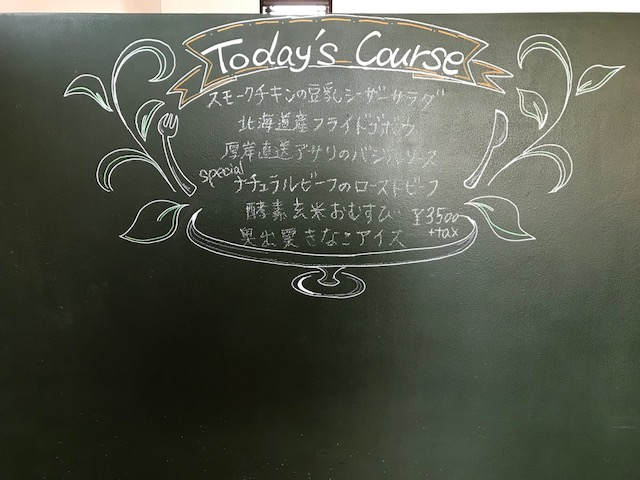 Today's Course
スモークチキンの豆乳シーザーサラダ
北海道産フライドゴボウ
厚岸直送アサリのバジルソース
special
ナチュラルビーフのローストビーフ
酵素玄米おむすび ¥3500
+tax
奥出雲きなこアイス